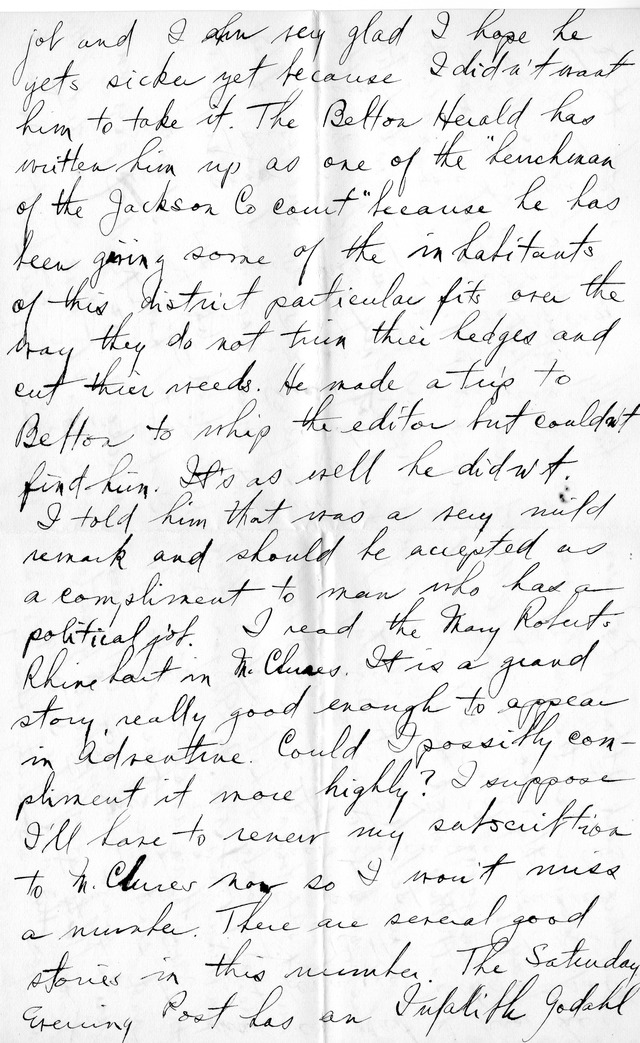 job and I am very glad I hope he
gets sicker yet because I didn't want
him to take it. The Belton Herald has
written him up as one of the "henchman
of the Jackson Co court" because he has
been giving some of the inhabitants
of this district particular fits over the
way they do not trim thier hedges and
cut thier weeds. He made a trip to
Belton to whip the editor but couldn't
find him. It's as well he didn't.
I told him that was a very mild
remark and should be accepted as
a compliment to man who has a
political job. I read the Mary Roberts
Rhinehart in McClures. It is a grand
story, really good enough to appear
in Adventure. Could I possibly com-
pliment it more highly? I suppose
I'll have to renew my subscribtion
to McClures now so I won't miss
a number. There are several good
stories in this number. The Saturday
Evening Post has an Godahl